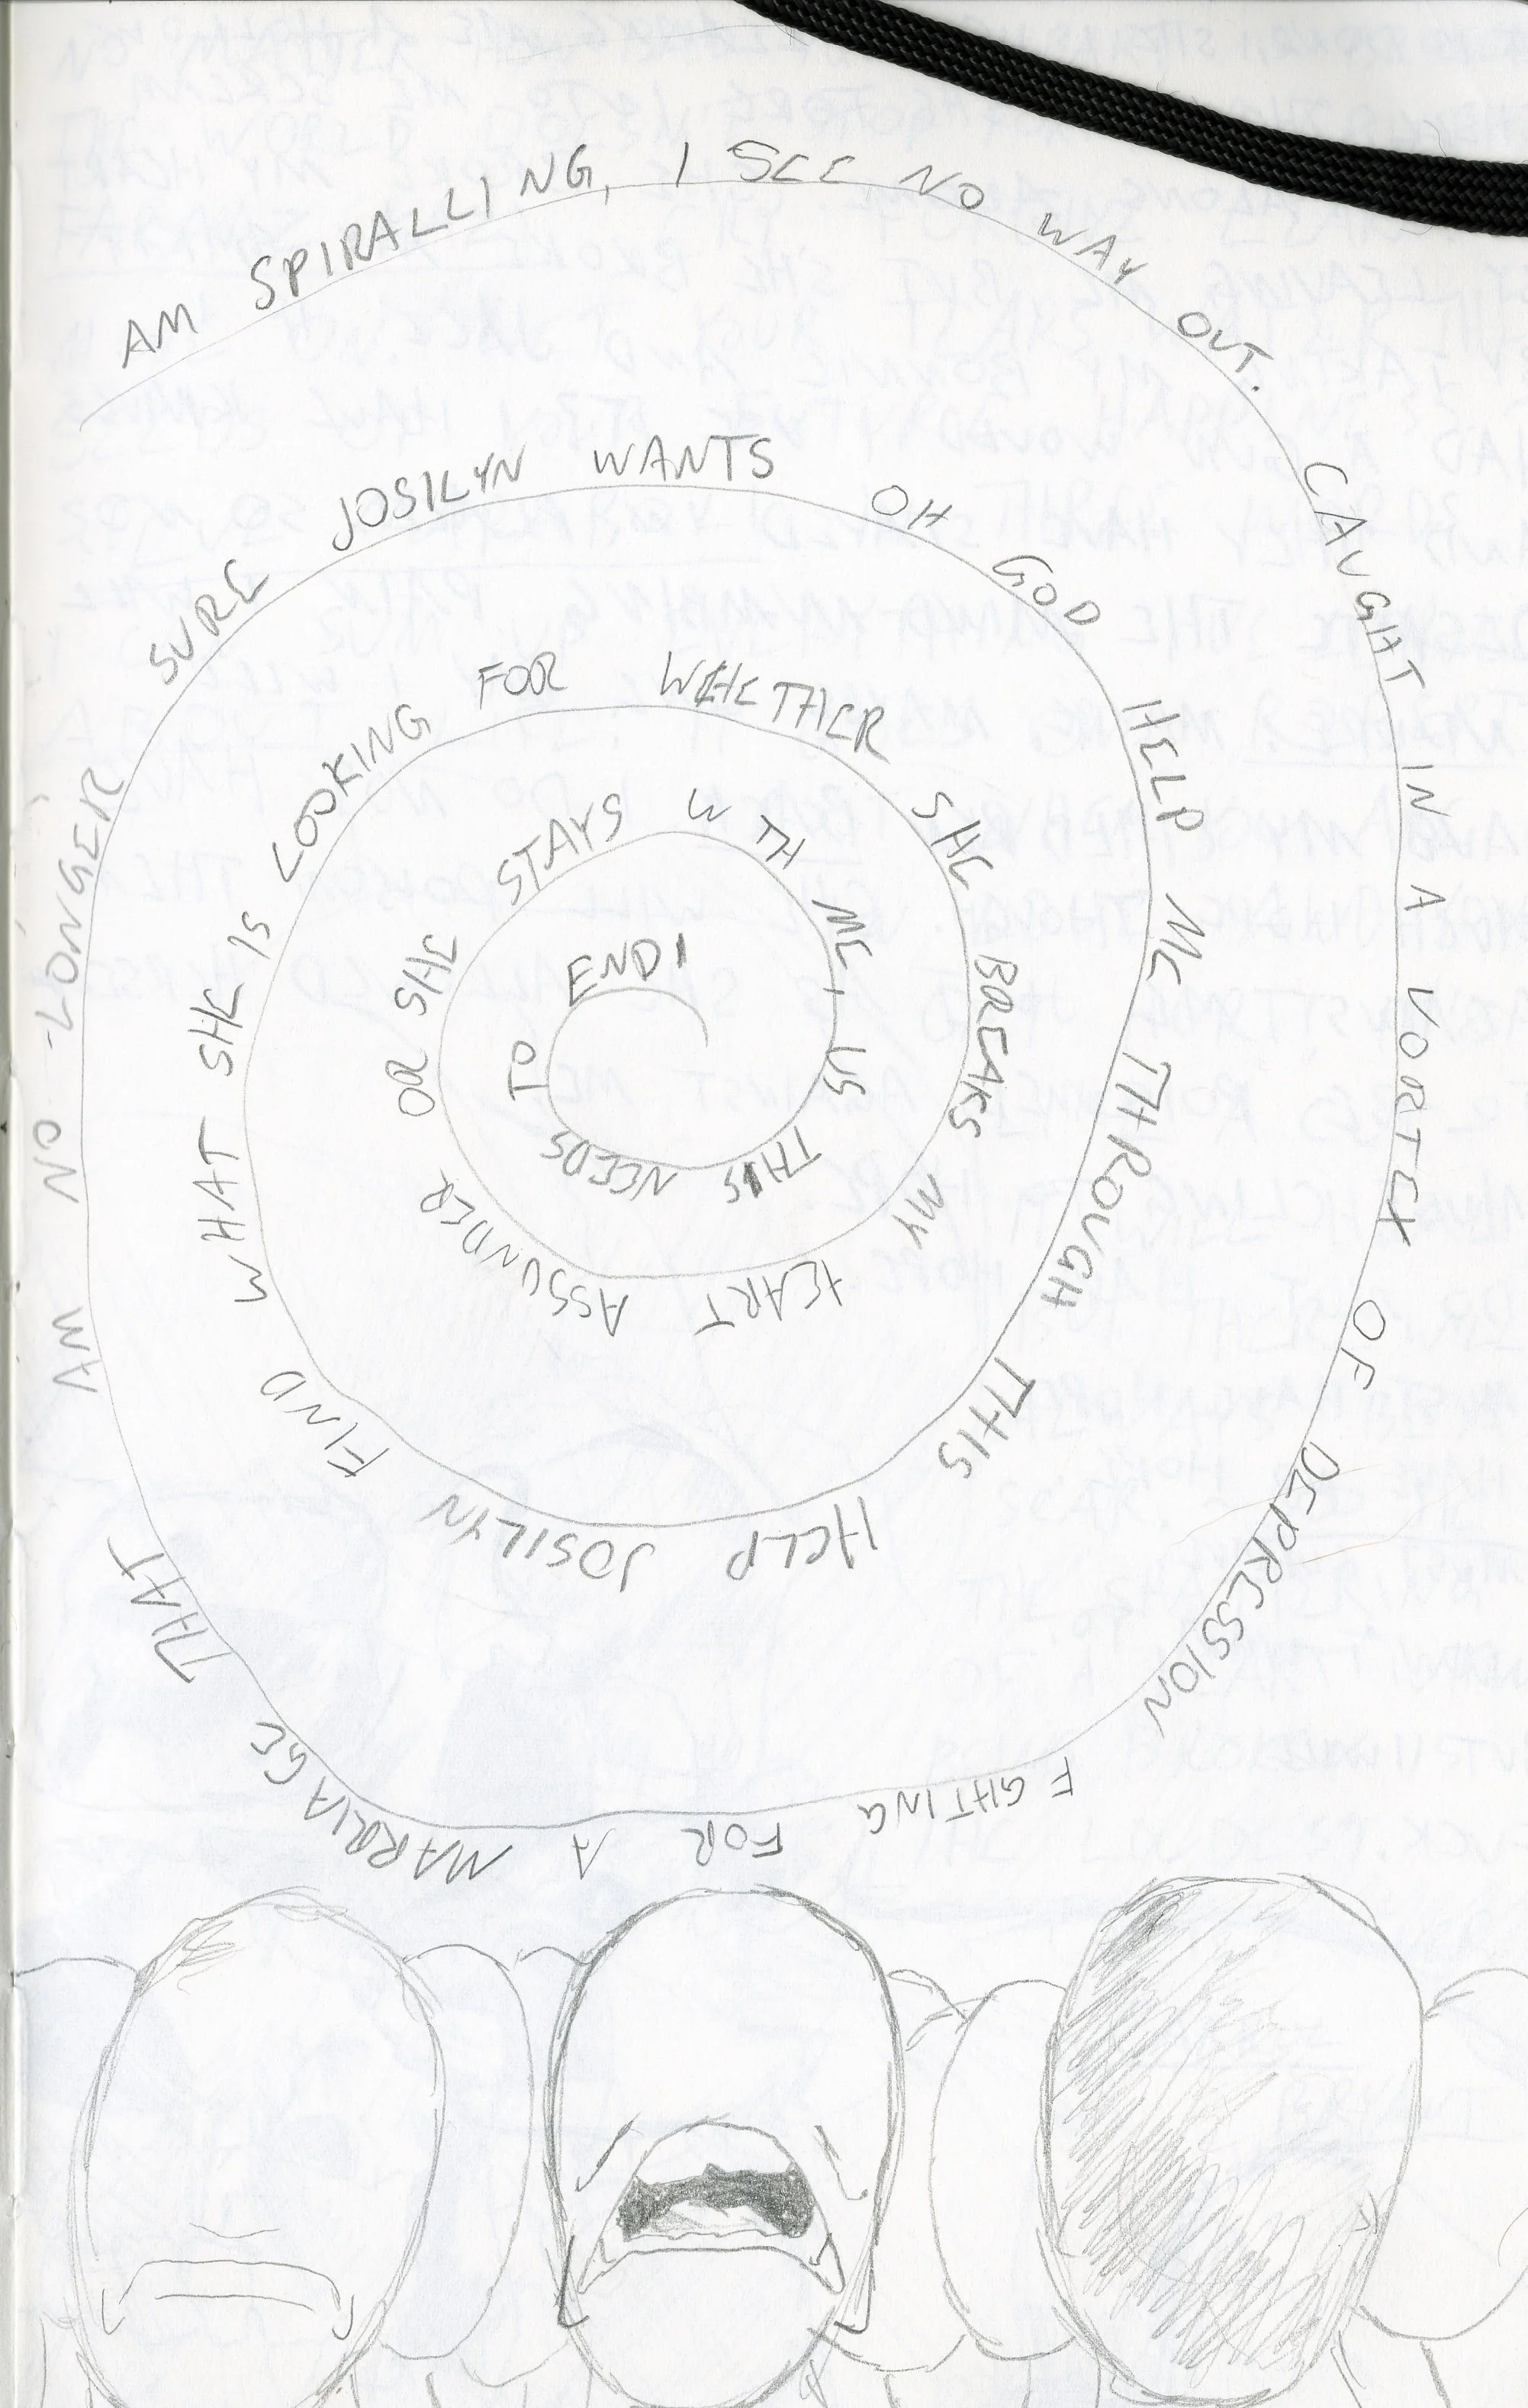 AM SPIRALLING, I SEE NO WAY OUT. CAUGHT IN A VORTEX OF DEPRESSION FGHTING FOR A MARRIAGE THAT AM NO LONGER SURE JOSILYN WANTS OH GOD HELP ME THROUGH THIS HELP JOSILYN FIND WHAT SHE IS LOOKING FOR WHETHER SHE BREAKS MY HEART ASSUNDER OR SHE STAYS W TH ME I US THIS NEEDS TO END I